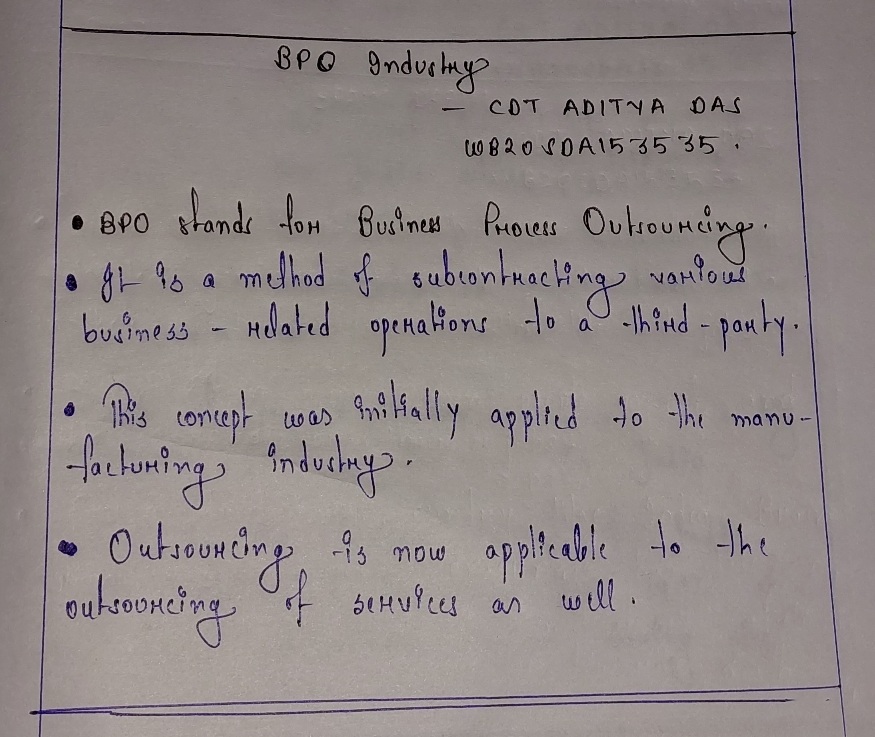 BPO Industry
- CDT ADITYA DAS
WB20SDA153535.
• BPO stands for Business Process Outsourcing.
• It is a method of subcontracting various
business - related operations to a third - party.
• This concept was initially applied to the manu-
facturing industry.
• Outsourcing is now applicable to the
outsourcing of services as well.